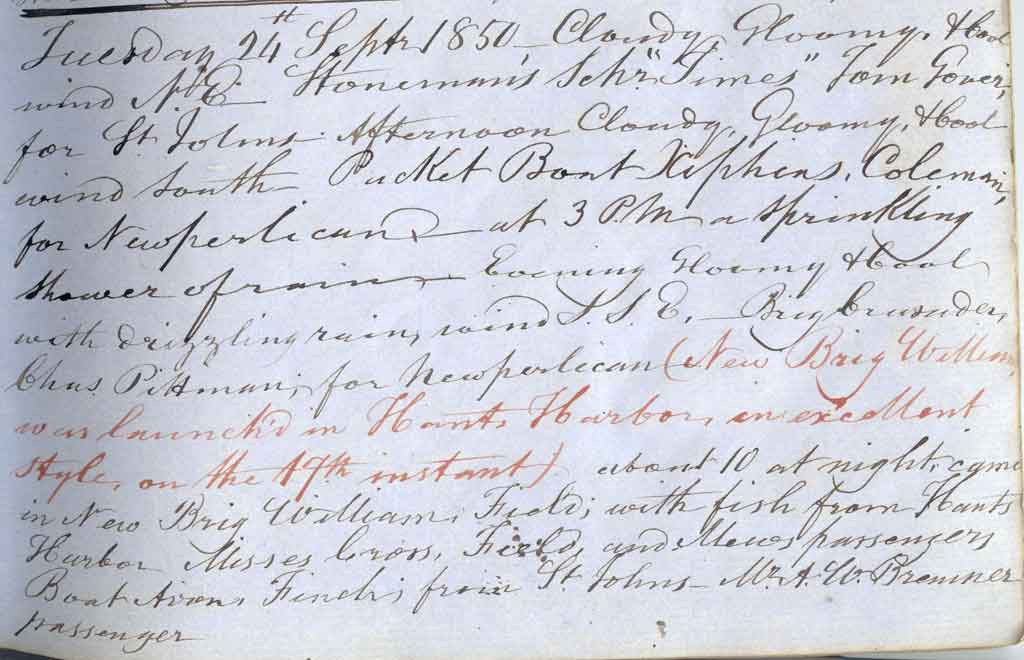 Tuesday 24th Septr 1850 — Cloudy, Gloomy, & Cool
wind N.E. Stoneman's Schr. "Times" Tom Gover,
for St. Johns. Afternoon Cloudy, Gloomy, & Cool
wind South — Packet Boat Xiphias, Coleman,
for Newperlican, — at 3 P.M a sprinkling
shower of rain — Evening Gloomy & Cool
with drizzling rain, wind S.S.E. — Brig Crusader,
Chas. Pittman, for Newperlican (New Brig William
was launch'd in Hants Harbor, in excellent
style, on the 17th instant) about 10 at night, came
in New Brig William, Field, with fish from Hants
Harbor Misses Cross, Field, and Mews passengers
Boat Avon, Finch, from St. Johns — Mr. A. W. Bremner
passenger